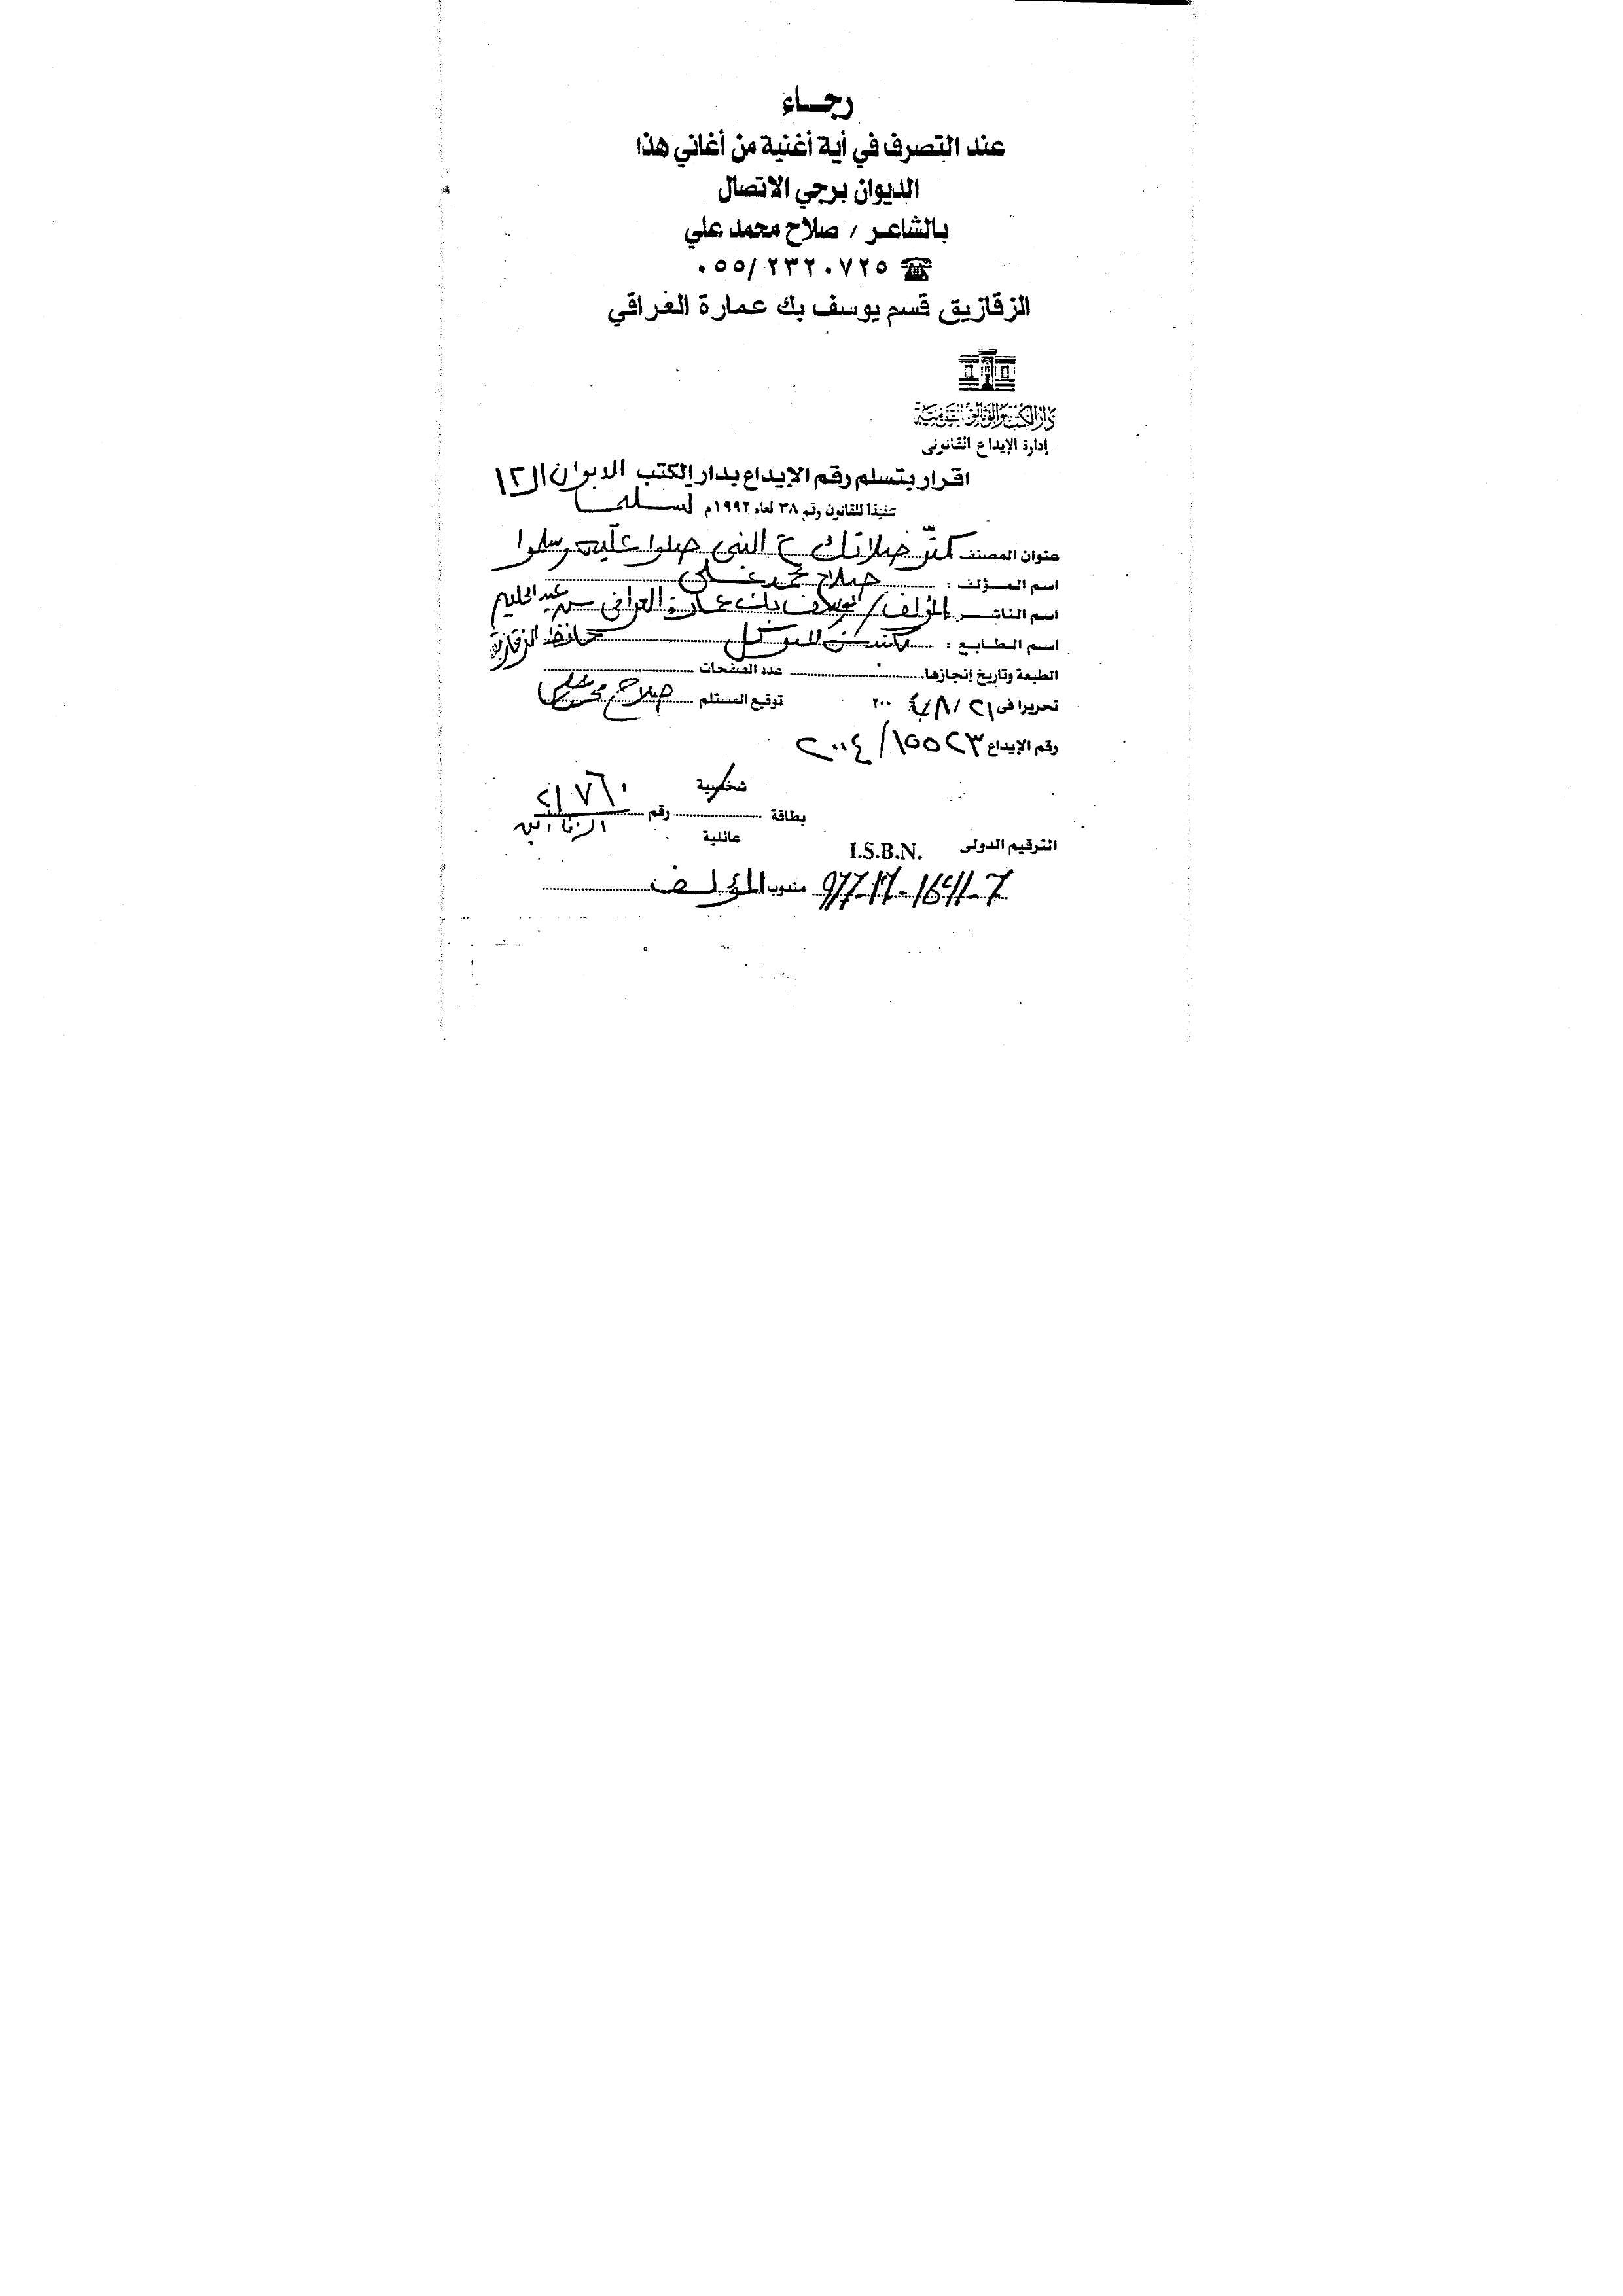 رجـــاء
عند التصرف في أية أغنية من أغاني هذا
الديوان برجي الاتصال
بالشاعـر / صلاح محمد علي
☎ ٠٥٥/٢٣٢٠٧٢٥
الزقازيق قسم يوسف بك عمارة العراقي
دار الكتب والوثائق القومية
إدارة الإيداع القانونى
اقرار بتسلم رقم الإيداع بدار الكتب الديوان الـ ١٢
تنفيذا للقانون رقم ٣٨ لعام ١٩٩٢م
عنوان المصنف كتّر صلاتك ع النبى صلوا عليه وسلموا
اسم المـؤلف : صلاح محمد على
اسم الناشـر المؤلف / يوسف بك عمارة العراقى ش عبد الحليم
اسم الطـابع : حافظ الزقازيق
الطبعة وتاريخ إنجازها عدد الصفحات
تحريرا فى ٢١ / ٨ / ٢٠٠٤ توقيع المستلم صلاح محمد على
رقم الإيداع ١٥٥٢٣ / ٢٠٠٤
شخصية
بطاقة رقم ٢١٧٦٠
عائلية
الترقيم الدولى I.S.B.N.
977-17-1641-7 مندوب المؤلف